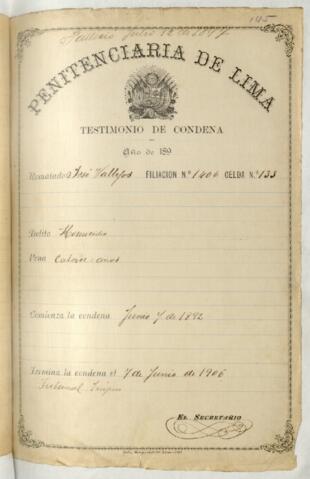 145
Falleció Julio 12 de 1897
PENITENCIARIA DE LIMA
TESTIMONIO DE CONDENA
Año de 189
Rematado José Vallejos FILIACION N.º 1406 CELDA N.º 133
Delito Homicidio
Pena Catorce años
Comienza la condena Junio 7 de 1892
Termina la condena el 7 de Junio de 1906
Tribunal
EL SECRETARIO